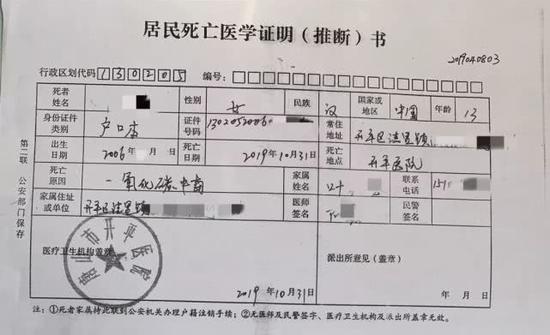 居民死亡医学证明（推断）书
2019040803
行政区划代码 130205 编号：
死者姓名 性别 女 民族 汉 国家或地区 中国 年龄 13
身份证件类别 户口本 证件号码 1302052006 常住地址 开平区洼里镇
出生日期 2006年 月 日 死亡日期 2019年10月31日 死亡地点 开平医院
死亡原因 一氧化碳中毒 家属姓名 联系电话 151
家属住址或单位 开平区洼里镇 医师签名 民警签名
医疗卫生机构盖章 派出所意见（盖章）
市开平医院
2019年10月31日 年 月 日
注：①死者家属持此联到公安机关办理户籍注销手续；②无医师及民警签字、医疗卫生机构及派出所盖章无效。
第二联 公安部门保存